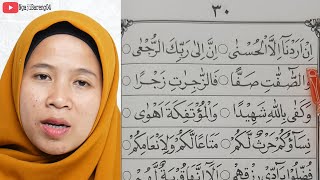 NgajiBareng04
٣٠
اِنْ اَرَدْنَآ اِلَّا الْحُسْنٰى ○ اِنَّ اِلٰى رَبِّكَ الرُّجْعٰى ○
الصّٰۤفّٰتِ صَفًّا ○ فَالزّٰجِرٰتِ زَجْرًا ○
وَكَفٰى بِاللّٰهِ شَهِيْدًا ○ وَالْمُؤْتَفِكَةَ اَهْوٰى ○
نِسَآؤُكُمْ حَرْثٌ لَّكُمْ ○ مَتَاعًا لَّكُمْ وَلِاَنْعَامِكُمْ ○